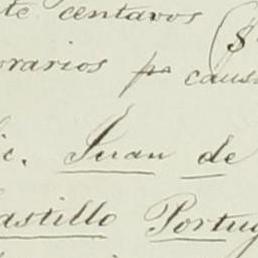 te centavos ($
orarios por caus
ic. Juan de
astillo Portug